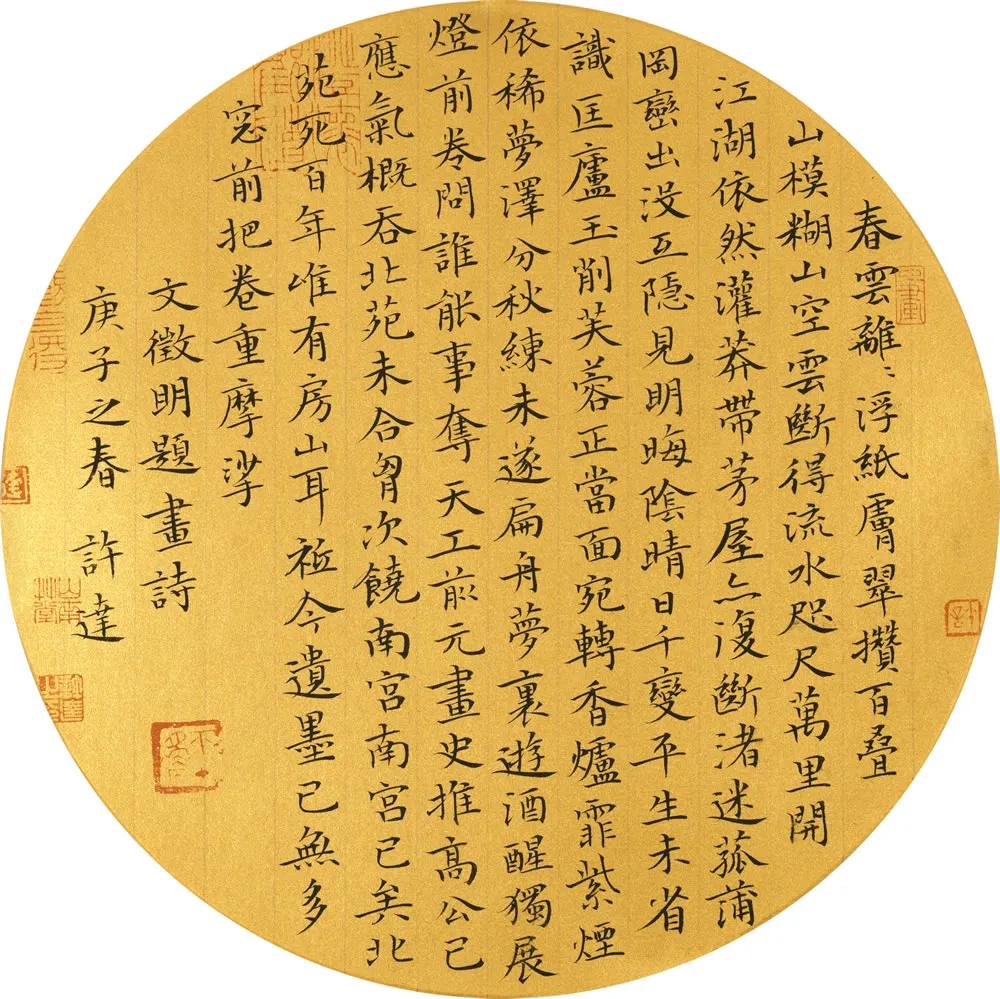 春雲離〻浮紙膚翠攢百疊
山模糊山空雲斷得流水咫尺萬里開
江湖依然灌莽帶茅屋亦復斷渚迷菰蒲
岡巒出没互隱見明晦陰晴日千變平生未省
識匡廬玉削芙蓉正當面宛轉香爐霏紫煙
依稀夢澤分秋練未遂扁舟夢裏遊酒醒獨展
燈前卷問誰能事奪天工前元畫史推高公已
應氣概吞北苑未合胷次饒南宫南宫已矣北
苑死百年唯有房山耳祗今遺墨已無多
窓前把卷重摩挲
文徵明題畫詩
庚子之春 許達